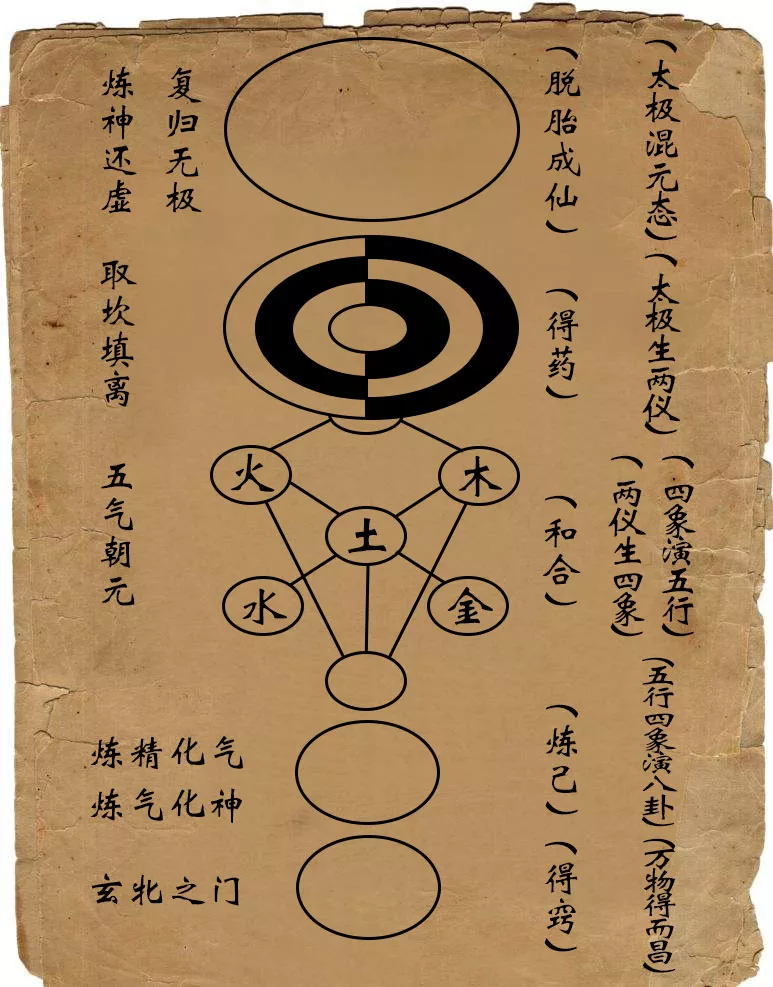 (太极混元态)
(脱胎成仙)
复归无极
炼神还虚
(太极生两仪)
(得药)
取坎填离
(四象演五行)
(两仪生四象)
(和合)
五气朝元
火
木
土
水
金
(五行四象演八卦)
(炼己)
炼精化气
炼气化神
(万物得而昌)
(得窍)
玄牝之门